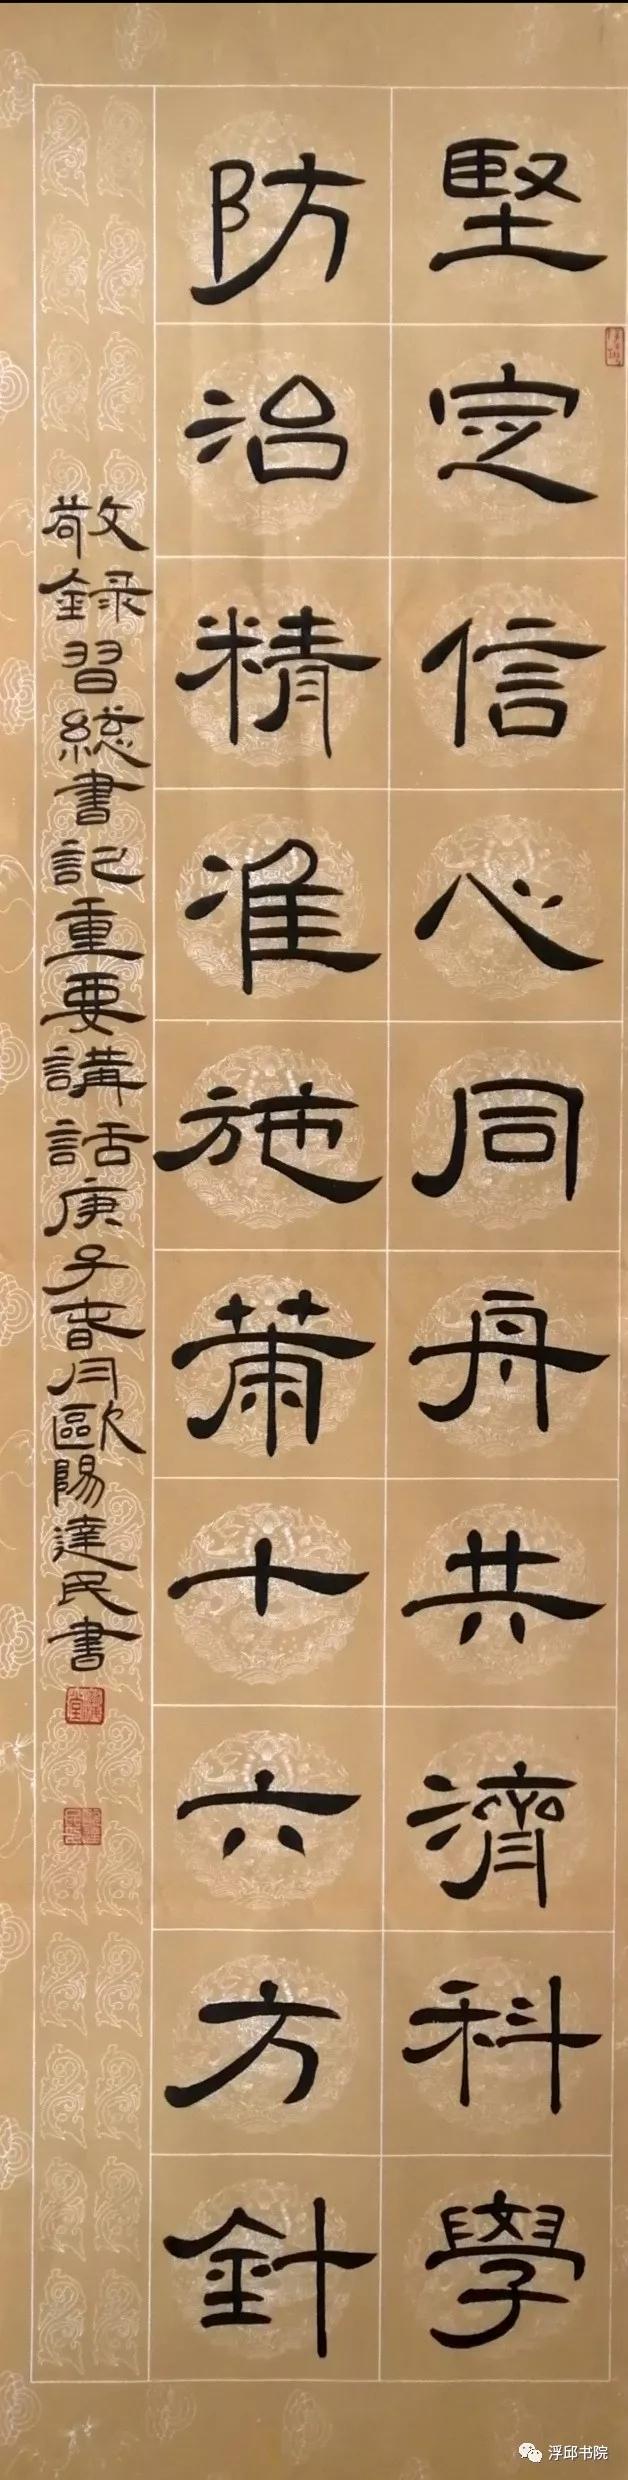 堅定信心同舟共濟科學
防治精准施策十六方針
敬録習總書記重要講話庚子春月歐陽達民書
浮邱书院